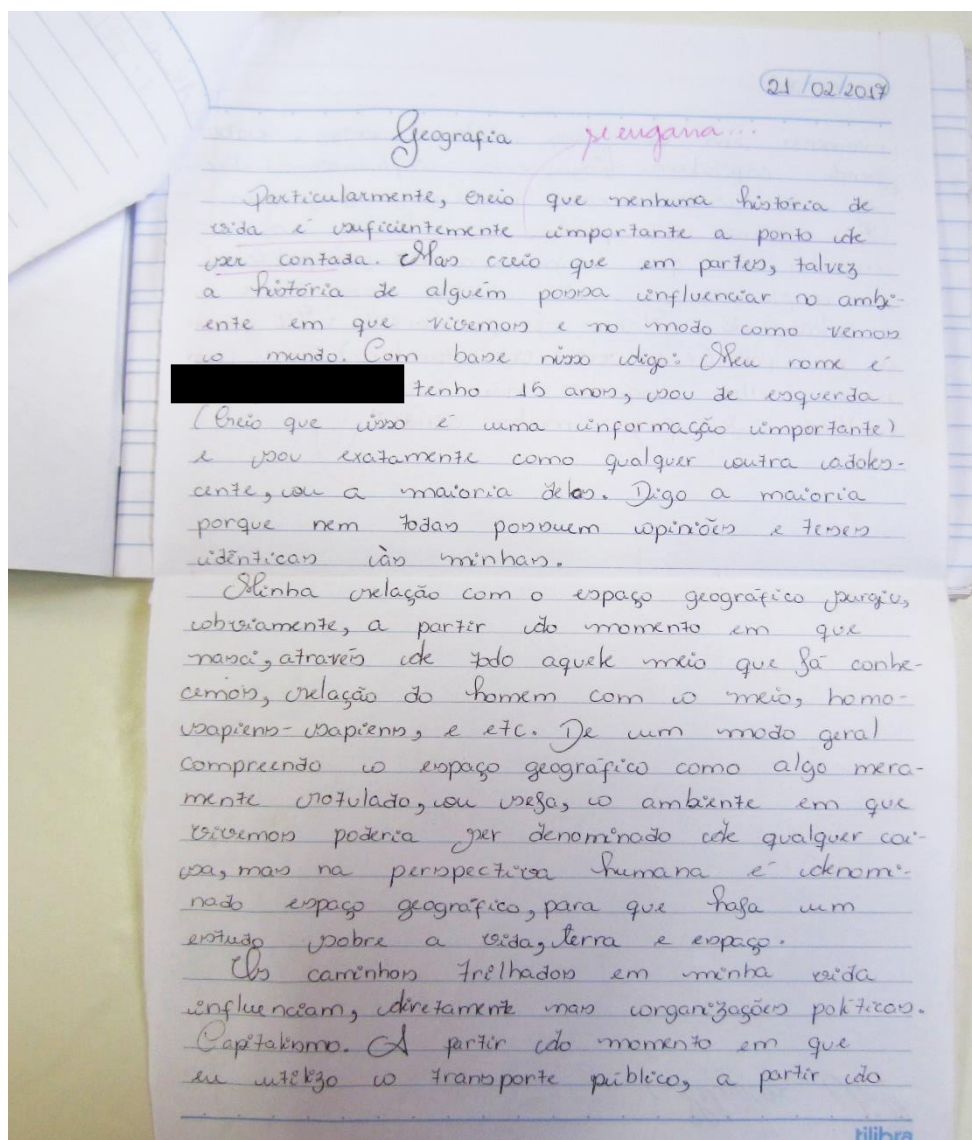 21/02/2017
Geografia se engana...
Particularmente, creio que nenhuma história de
vida é suficientemente importante a ponto de
ser contada. Mas creio que em partes, talvez
a história de alguém possa influenciar no ambi-
ente em que vivemos e no modo como vemos
o mundo. Com base nisso digo: Meu nome é
tenho 15 anos, sou de esquerda
(Creio que isso é uma informação importante)
e sou exatamente como qualquer outra adoles-
cente, ou a maioria delas. Digo a maioria
porque nem todas possuem opiniões e teses
idênticas às minhas.
Minha relação com o espaço geográfico surgiu,
obviamente, a partir do momento em que
nasci, através de todo aquele meio que já conhe-
cemos, relação do homem com o meio, homo-
sapiens-sapiens, e etc. De um modo geral
compreendo o espaço geográfico como algo mera-
mente rotulado, ou seja, o ambiente em que
vivemos poderia ser denominado de qualquer coi-
sa, mas na perspectiva humana é denomi-
nado espaço geográfico, para que haja um
estudo sobre a vida, terra e espaço.
Os caminhos trilhados em minha vida
influenciam, diretamente nas organizações políticas.
Capitalismo. A partir do momento em que
eu utilizo o transporte público, a partir do
tilibra